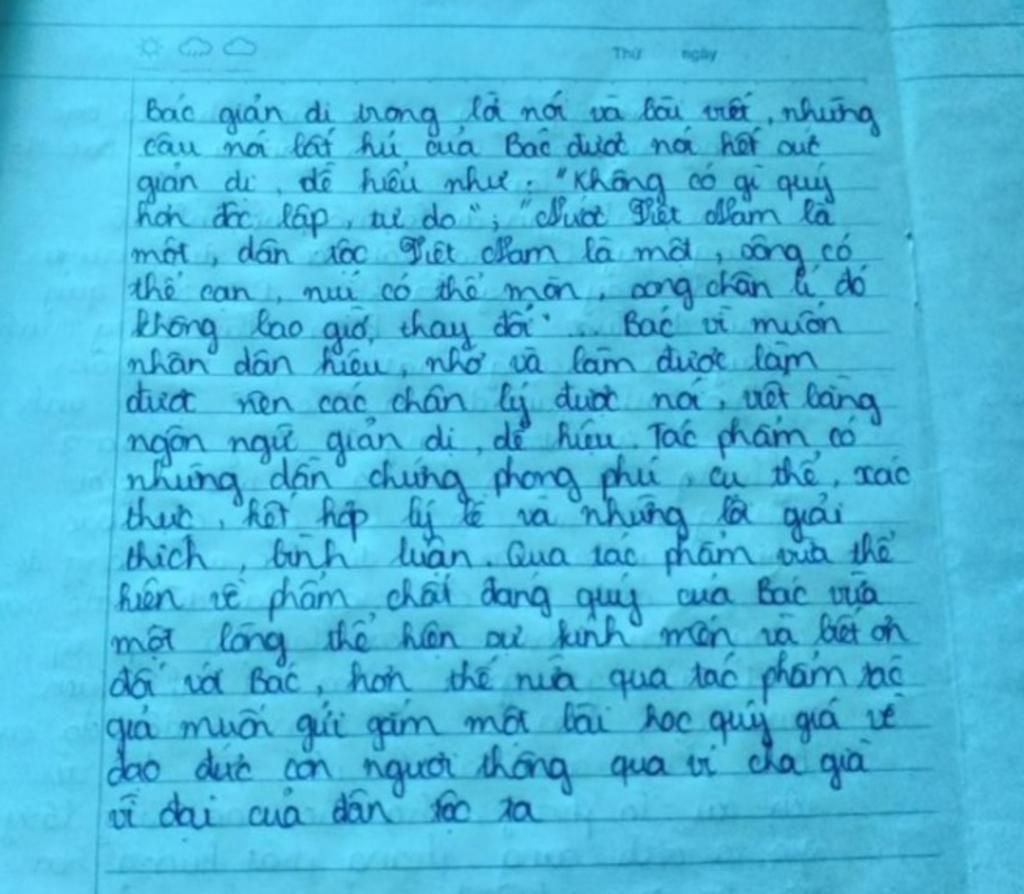 Thứ ngày
Bác giản dị trong lời nói và bài viết, những
câu nói bất hủ của Bác được nói hết sức
giản dị, dễ hiểu như: "Không có gì quý
hơn độc lập, tự do"; "Nước Việt Nam là
một, dân tộc Việt Nam là một, sông có
thể cạn, núi có thể mòn, song chân lí đó
không bao giờ thay đổi". Bác vì muốn
nhân dân hiểu, nhớ và làm được làm
được nên các chân lý được nói, viết bằng
ngôn ngữ giản dị, dễ hiểu. Tác phẩm có
những dẫn chứng phong phú, cụ thể, xác
thực, kết hợp lý lẽ và những lời giải
thích, bình luận. Qua tác phẩm vừa thể
hiện về phẩm chất đáng quý của Bác vừa
một lòng thể hiện sự kính mến và biết ơn
đối với Bác, hơn thế nữa qua tác phẩm tác
giả muốn gửi gắm một bài học quý giá về
đạo đức con người thông qua vị cha già
vĩ đại của dân tộc ta